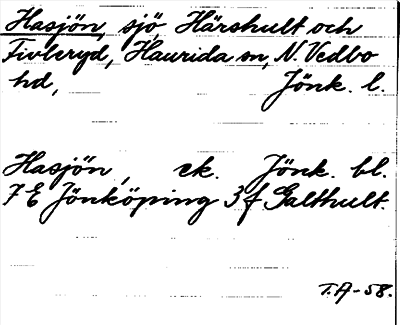 Hasjön, sjö, Härshult och
Fivleryd, Haurida sn, N. Vedbo
hd, Jönk. l.
Hasjön, ek. Jönk. bl.
7 E Jönköping 3 f Galthult.
T.A-58.